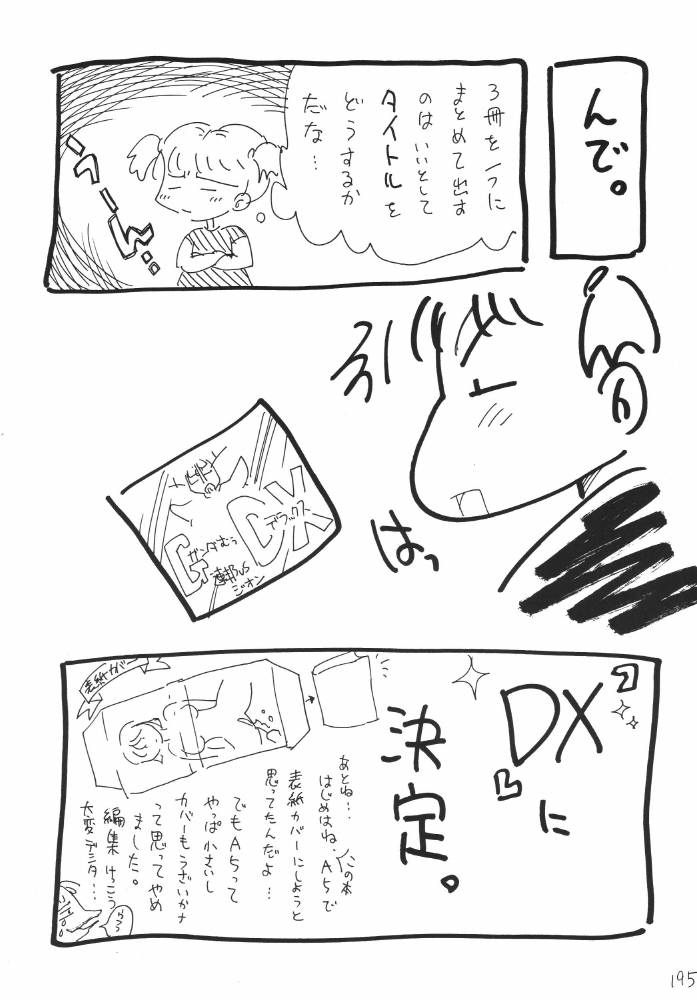 んで。
3冊を1つに
まとめて出す
のはいいとして
タイトルを
どうするか
だな…
うーん…
はっ
DX
デラックス
G
ガンダむぅ
連邦VS
ジオン
『DX』に
決定。
表紙カバー
あとね…
はじめはね、この本A5で
表紙カバーにしようと
思ってたんだよ…
でもA5って
やっぱ小さいし
カバーもうざいかナ
って思ってやめ
ました。
編集けっこう
大変デシタ…
195